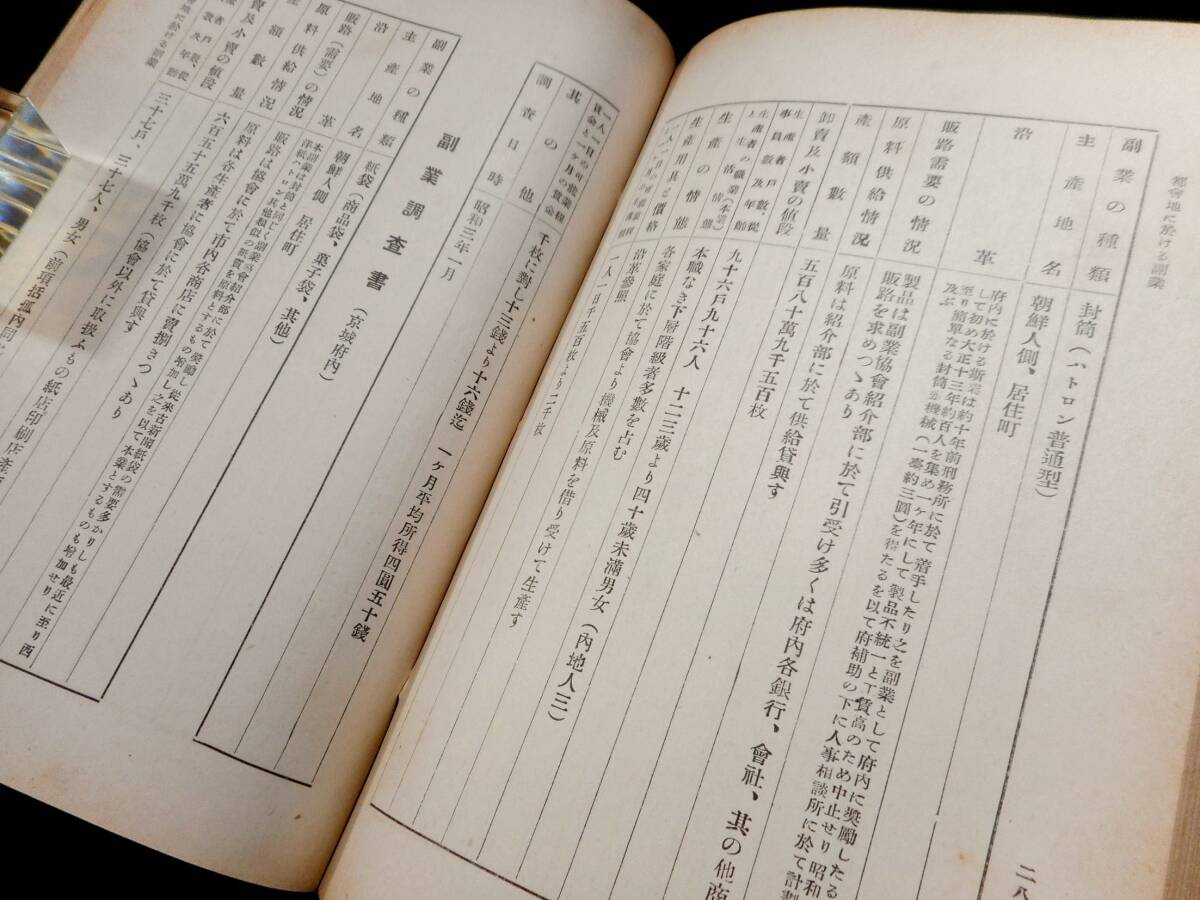 都會地に於ける副業
二八
副業の種類 封筒(ハトロン普通型)
主產地名 朝鮮人側、居住町
沿革 府內に於ける斯業は約十年前刑務所に於て着手したり之を副業として府內に奬勵したる
して初め大正十三年約百人を集め一ヶ年にして製品不統一と工賃高のため中止せり昭和
至り簡單なる封筒機械(一臺約三圓)を得たるを以て府補助の下に人事相談所に於て計劃
及ぶ
販路需要の情況 製品は副業協會紹介部に於て引受け多くは府內各銀行、會社、其の他商
販路を求めつゝあり
原料供給情況 原料は紹介部に於て供給貸與す
產額數量 五百八十萬九千五百枚
卸賣及小賣の値段
生產者戶及數、從
事員數
生產者の職業及年齡 九十六戶九十六人 十二三歲より四十歲未滿男女(內地人三)
と生の活(本業) 本職なき下層階級者多數を占む
生產の情態 各家庭に於て協會より機械及原料を借り受けて生產す
生產用具と價格 沿革參照
一人一日千五百枚より二千枚
一人一日の可能業程
賃金と一ヶ月の賃金 千枚に對し十三錢より十六錢迄 一ヶ月平均所得四圓五十錢
其の他
調查日時 昭和三年一月
副業調查書(京城府內)
副業の種類 紙袋(商品袋、菓子袋、其他)
主產地名 朝鮮人側 居住町
沿革 本副業は封筒と同じく副業協會紹介部に於て奬勵し從來古新聞紙袋の需要多かりしも最近に至り西
洋紙ハトロン其他類似の紙質を原料とするもの增加し之を以て本業とするものも增加せり
販路(需要)の情況 販路は協會に於て市內各商店に賣捌きつゝあり
原料供給情況 原料は各生產者に協會に於て貸與す
產額數量 六百五十五萬九千枚(協會以外に取扱ふもの紙店印刷店產
賣及小賣の値段
三十七戶、三十七人、男女(前項括弧內同
地に於ける副業